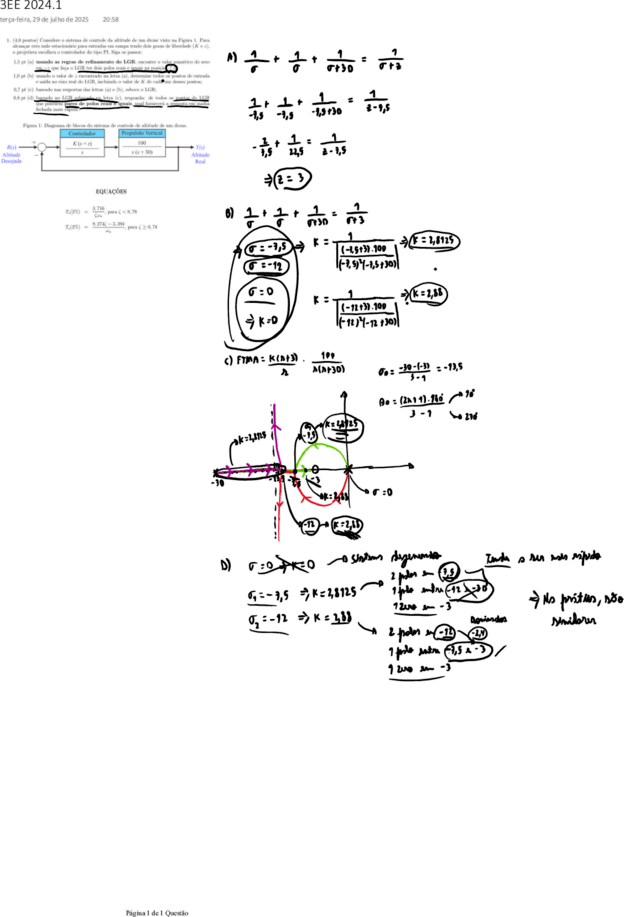 3EE 2024.1
terça-feira, 29 de julho de 2025 20:58
1. (4,0 pontos) Considere o sistema de controle da altitude de um drone visto na Figura 1. Para
alcançar erro nulo estacionário para entradas em rampa tendo dois graus de liberdade (K e z),
o projetista escolheu o controlador do tipo PI. Siga os passos:
1,5 pt (a) usando as regras de refinamento do LGR, encontre o valor numérico do zero
que faça o LGR ter dois polos reais e iguais na posição
1,0 pt (b) usando o valor de z encontrado na letra (a), determine todos os pontos de entrada
e saída no eixo real do LGR, incluindo o valor de K de cada um desses pontos;
0,7 pt (c) baseado nas respostas das letras (a) e (b), esboce o LGR;
0,8 pt (d) baseado no LGR esboçado na letra (c), responda: de todos os pontos do LGR
que possuem pares de polos reais e iguais, qual fornecerá a resposta em malha
fechada mais rápida?
Figura 1: Diagrama de blocos do sistema de controle de altitude de um drone.
Controlador Propulsão Vertical
R(s) + K(s+z) 100 Y(s)
− s s(s+30)
Altitude Desejada
Altitude Real
EQUAÇÕES
, para ζ < 0,78
, para ζ ≥ 0,78
A) 1/σ + 1/σ + 1/(σ+30) = 1/(σ+z)
1/-7,5 + 1/-7,5 + 1/(-7,5+30) = 1/(z-7,5)
-2/7,5 + 1/22,5 = 1/(z-7,5)
⇒ z = 3
B) 1/σ + 1/σ + 1/(σ+30) = 1/(σ+3)
σ = -7,5 ⇒ K = 1/|(-7,5+3).100/(-7,5)²(-7,5+30)| ⇒ K = 2,8125
σ = -12
σ = 0
⇒ K = 0
K = 1/|(-12+3).100/(-12)²(-12+30)| ⇒ K = 2,88
C) FTMA = K(s+3)/s . 100/s(s+30)
σ0 = (-30-(-3))/(3-1) = -13,5
θ0 = (2k+1).180°/(3-1) → 90°
→ 270°
K=2,8125
-7,5 K=2,8125
-30 -13,5 -7,5 -3
K=2,88
σ=0
-12 → K=2,88
D) σ = 0 ⇒ K = 0 → Sistema
σ1 = -7,5 ⇒ K = 2,8125
2 polos em -7,5
1 polo entre -12 e -30
1 zero em -3
Tende a ser mais rápido
⇒ Na prática, são
similares
σ2 = -12 ⇒ K = 2,88
Dominados
2 polos em -12 -2,4
1 polo entre -7,5 e -3
1 zero em -3
Página 1 de 1 Questão